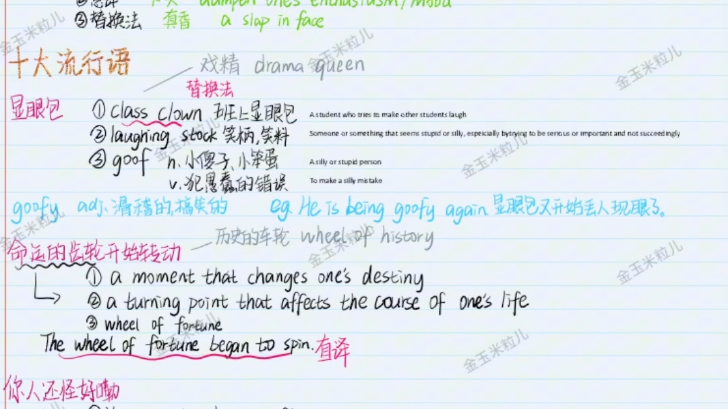 dampen one's enthusiasm/mood
③替换法 真香 a slap in face
十大流行语
戏精 drama queen
替换法
显眼包 ① class clown 班上显眼包 A student who tries to make other students laugh
② laughing stock 笑柄,笑料 Someone or something that seems stupid or silly, especially by trying to be serious or important and not succeeding
③ goof n. 小傻子、小笨蛋 A silly or stupid person
v. 犯愚蠢的错误 To make a silly mistake
goofy adj. 滑稽的,搞笑的 eg. He is being goofy again 显眼包又开始丢人现眼了。
命运的齿轮开始转动 历史的车轮 wheel of history
① a moment that changes one's destiny
② a turning point that affects the course of one's life
③ wheel of fortune
The wheel of fortune began to spin. 直译
你人还怪好嘞
金玉米粒儿